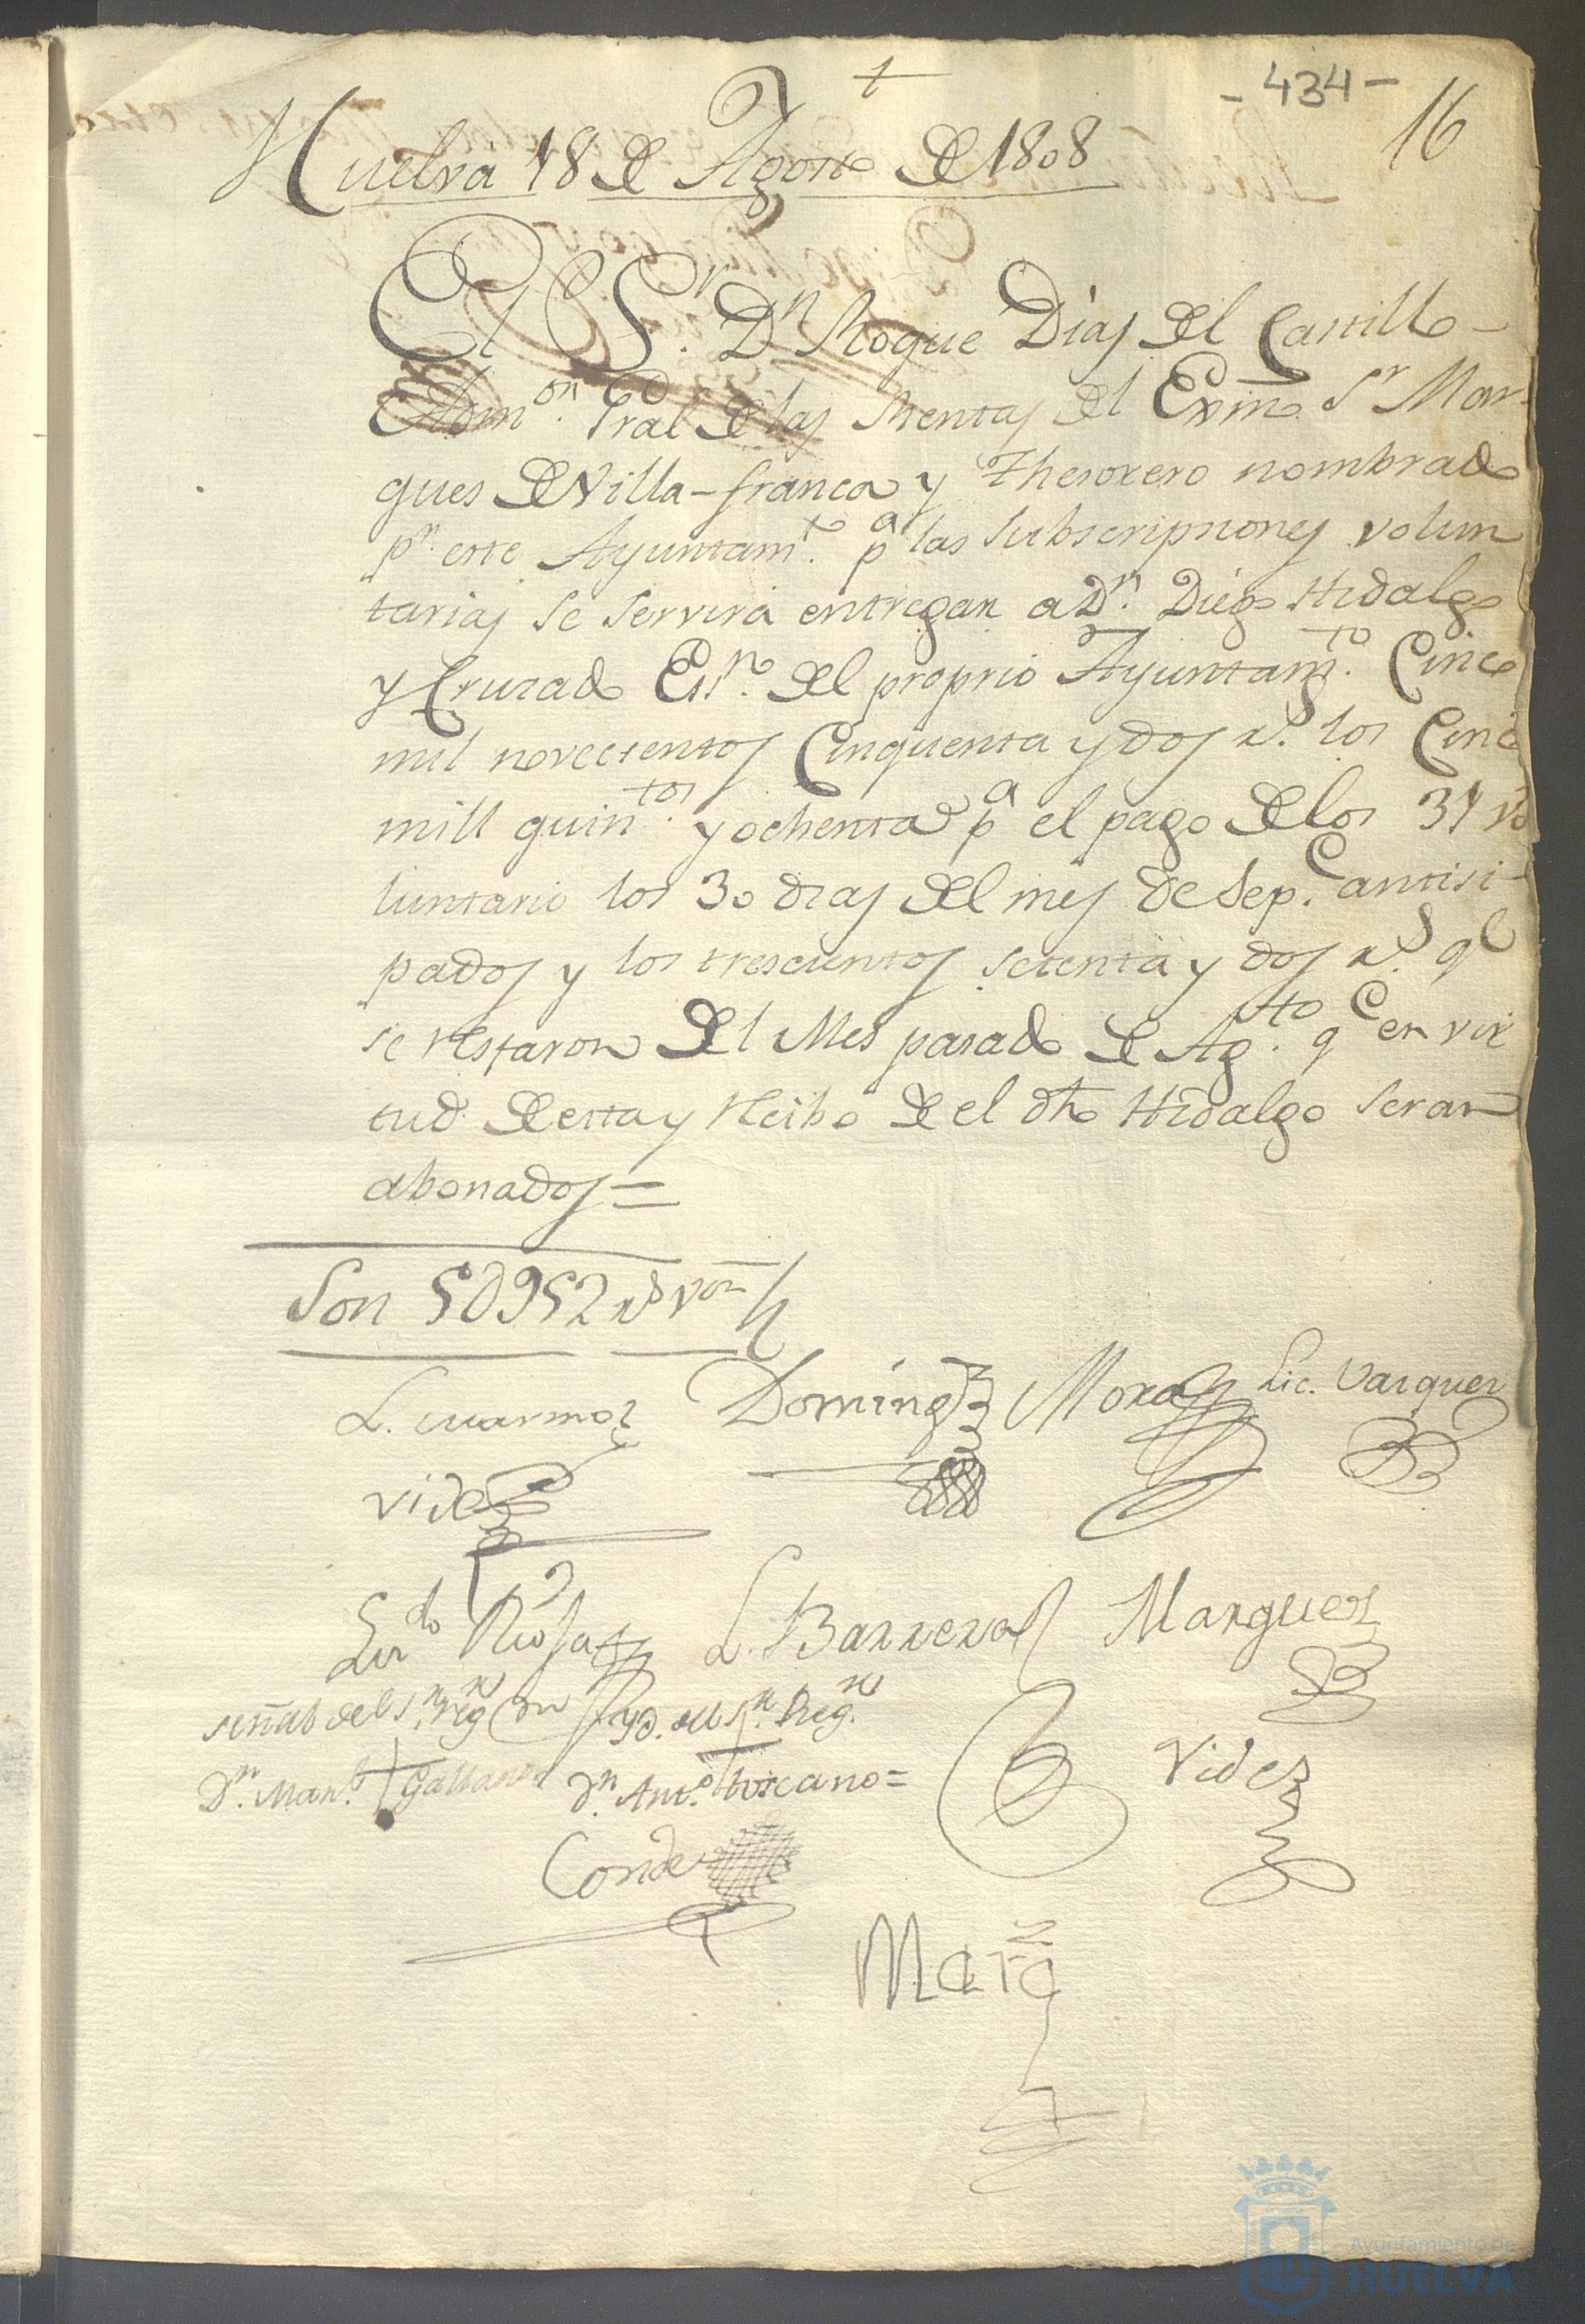 -434-
16
†
Huelva 18 de Agosto de 1808
El Sr. Dn Roque Dias del Castillo
Admon. Pral de las Rentas del Exmo. Sr Mar
ques de Villa-franca y Thesorero nombrado
pr. este Ayuntamto. pa las Subscripnones volun
tarias se servirá entregar a Dn. Diego Hidalgo
y Cruzado Essno. del proprio Ayuntamto. Cinco
mil novecientos Cinquenta y dos rs. los Cinc
mill quintos. y ochenta pa el pago de los 31 vo
luntario los 30 dias del mes de Sepe. antisi-
pados y los trescientos setenta y dos rs. qe
se restaron del Mes pasado de Agto. qe en vir
tud de esta y Recibo de el dho Hidalgo seran
abonados=
Son 5d952 rs von
L. cuarmoz Doming Mora Lic. Vasquez
Vides
Lizdo Rioja L. Barrera Marquez
señal del Sr. Regr yd. del Sr. Regr.
Dn. Manl. † Gallardo dn. Anto. toscano=
Videz
Conde
Ayuntamiento de
HUELVA